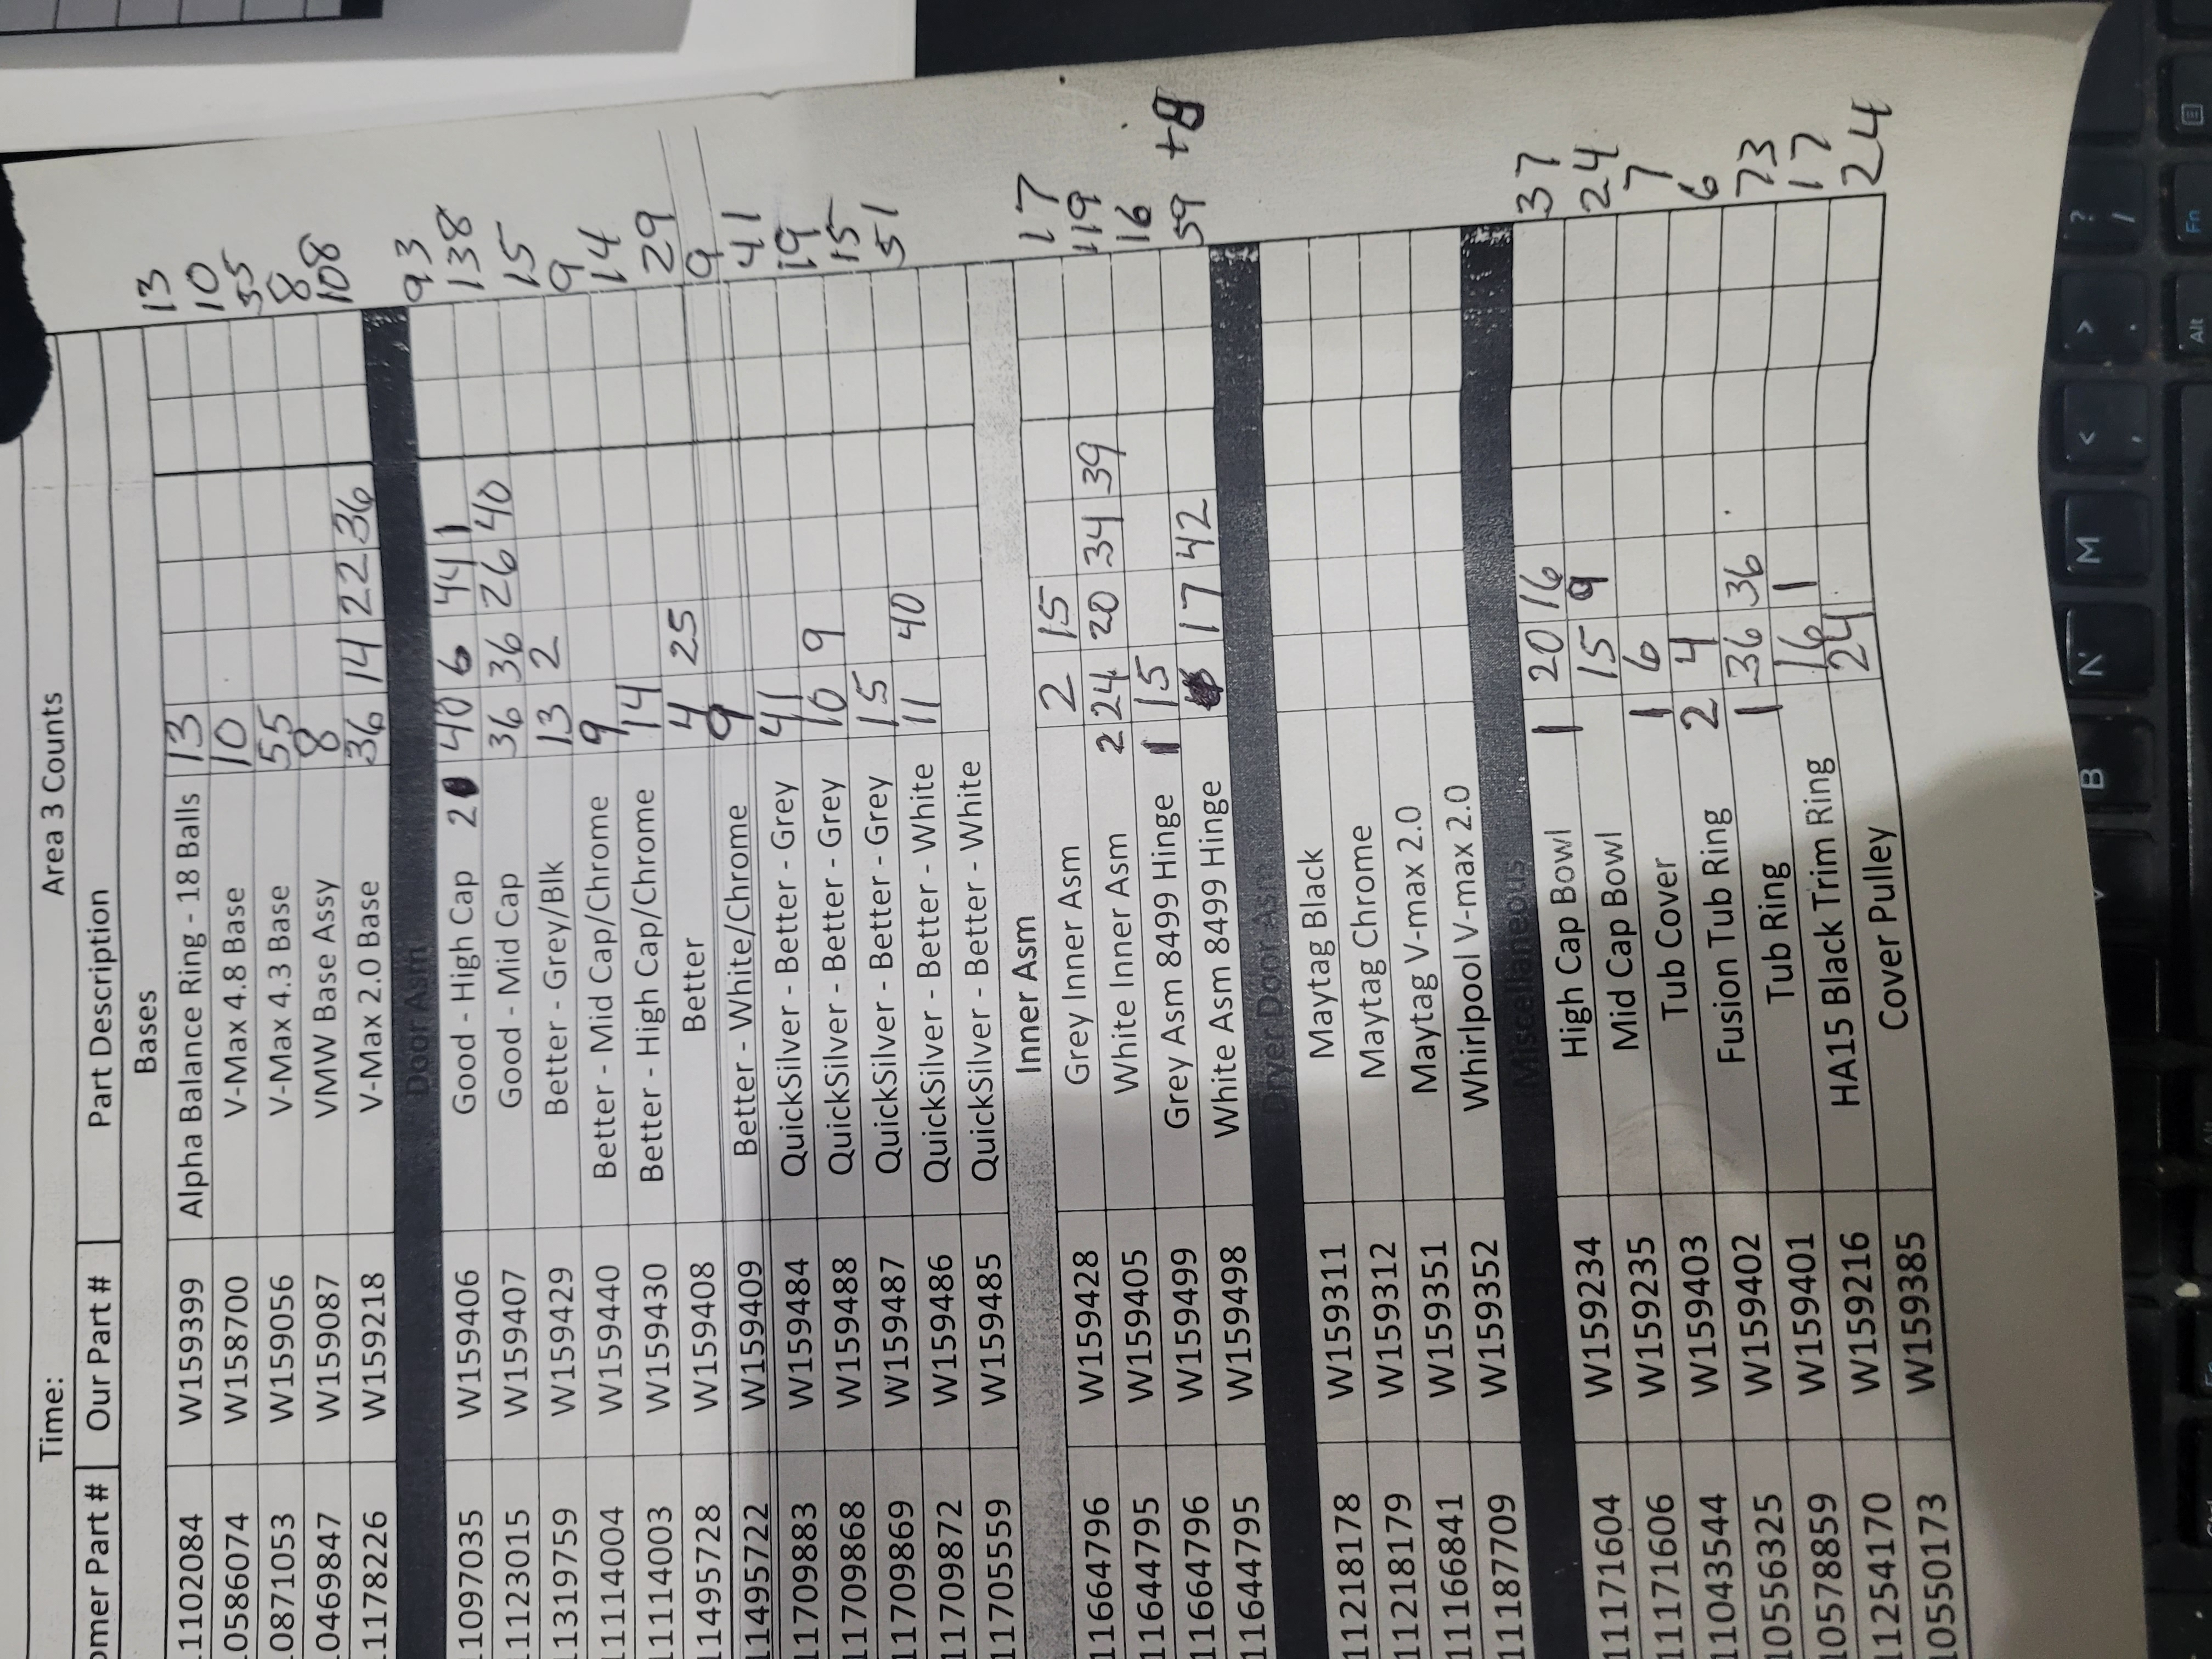 Time: Area 3 Counts
omer Part # Our Part # Part Description
Bases
11102084 W159399 Alpha Balance Ring - 18 Balls 13 13
10586074 W158700 V-Max 4.8 Base 10 10
10871053 W159056 V-Max 4.3 Base 55 55
10469847 W159087 VMW Base Assy 8 8
11178226 W159218 V-Max 2.0 Base 36 14 22 36 108
Door Asm
11097035 W159406 Good - High Cap 2 40 6 44 1 93
11123015 W159407 Good - Mid Cap 36 36 26 40 138
11319759 W159429 Better - Grey/Blk 13 2 15
11114004 W159440 Better - Mid Cap/Chrome 9 9
11114003 W159430 Better - High Cap/Chrome 14 14
11495728 W159408 Better 4 25 29
11495722 W159409 Better - White/Chrome 9 9
11709883 W159484 QuickSilver - Better - Grey 41 41
11709868 W159488 QuickSilver - Better - Grey 10 9 19
11709869 W159487 QuickSilver - Better - Grey 15 15
11709872 W159486 QuickSilver - Better - White 11 40 51
11705559 W159485 QuickSilver - Better - White
Inner Asm
11664796 W159428 Grey Inner Asm 2 15 17
11644795 W159405 White Inner Asm 2 24 20 34 39 119
11664796 W159499 Grey Asm 8499 Hinge 1 15 16
11644795 W159498 White Asm 8499 Hinge 17 42 59 +8
Dryer Door Asm
11218178 W159311 Maytag Black
11218179 W159312 Maytag Chrome
11166841 W159351 Maytag V-max 2.0
11187709 W159352 Whirlpool V-max 2.0
Miscellaneous
11171604 W159234 High Cap Bowl 1 20 16 37
11171606 W159235 Mid Cap Bowl 15 9 24
11043544 W159403 Tub Cover 1 6 7
10556325 W159402 Fusion Tub Ring 2 4 6
10578859 W159401 Tub Ring 1 36 36 73
11254170 W159216 HA15 Black Trim Ring 16 1 17
10550173 W159385 Cover Pulley 24 24
? /
> .
< ,
M
N
B
Alt
Fn